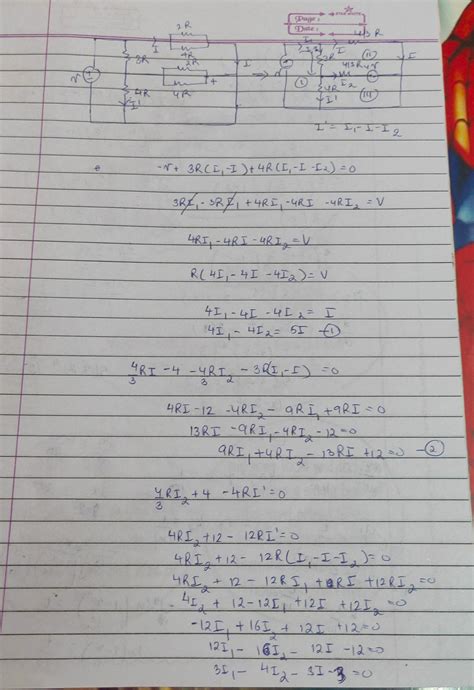 Page:
Date:
2R
4R
3R
2R
4R
4R
I
I
I'
+
V
I₁
I
4/3R
I
3R
4/3R
4V
I₂
4R
I'
V
①
(ii)
(iii)
I' = I₁-I-I₂
-V+3R(I₁-I)+4R(I₁-I-I₂)=0
3RI₁-3RI₁+4RI₁-4RI-4RI₂=V
4RI₁-4RI-4RI₂=V
R(4I₁-4I-4I₂)=V
4I₁-4I-4I₂=I
4I₁-4I₂=5I -①
4/3RI-4-4/3RI₂-3R(I₁-I)=0
4RI-12-4RI₂-9RI₁+9RI=0
13RI-9RI₁-4RI₂-12=0
9RI₁+4RI₂-13RI+12=0 -②
4/3RI₂+4-4RI'=0
4RI₂+12-12RI'=0
4RI₂+12-12R(I₁-I-I₂)=0
4RI₂+12-12RI₁+12RI+12RI₂=0
4I₂+12-12I₁+12I+12I₂=0
-12I₁+16I₂+12I+12=0
12I₁-16I₂-12I-12=0
3I₁-4I₂-3I-3=0